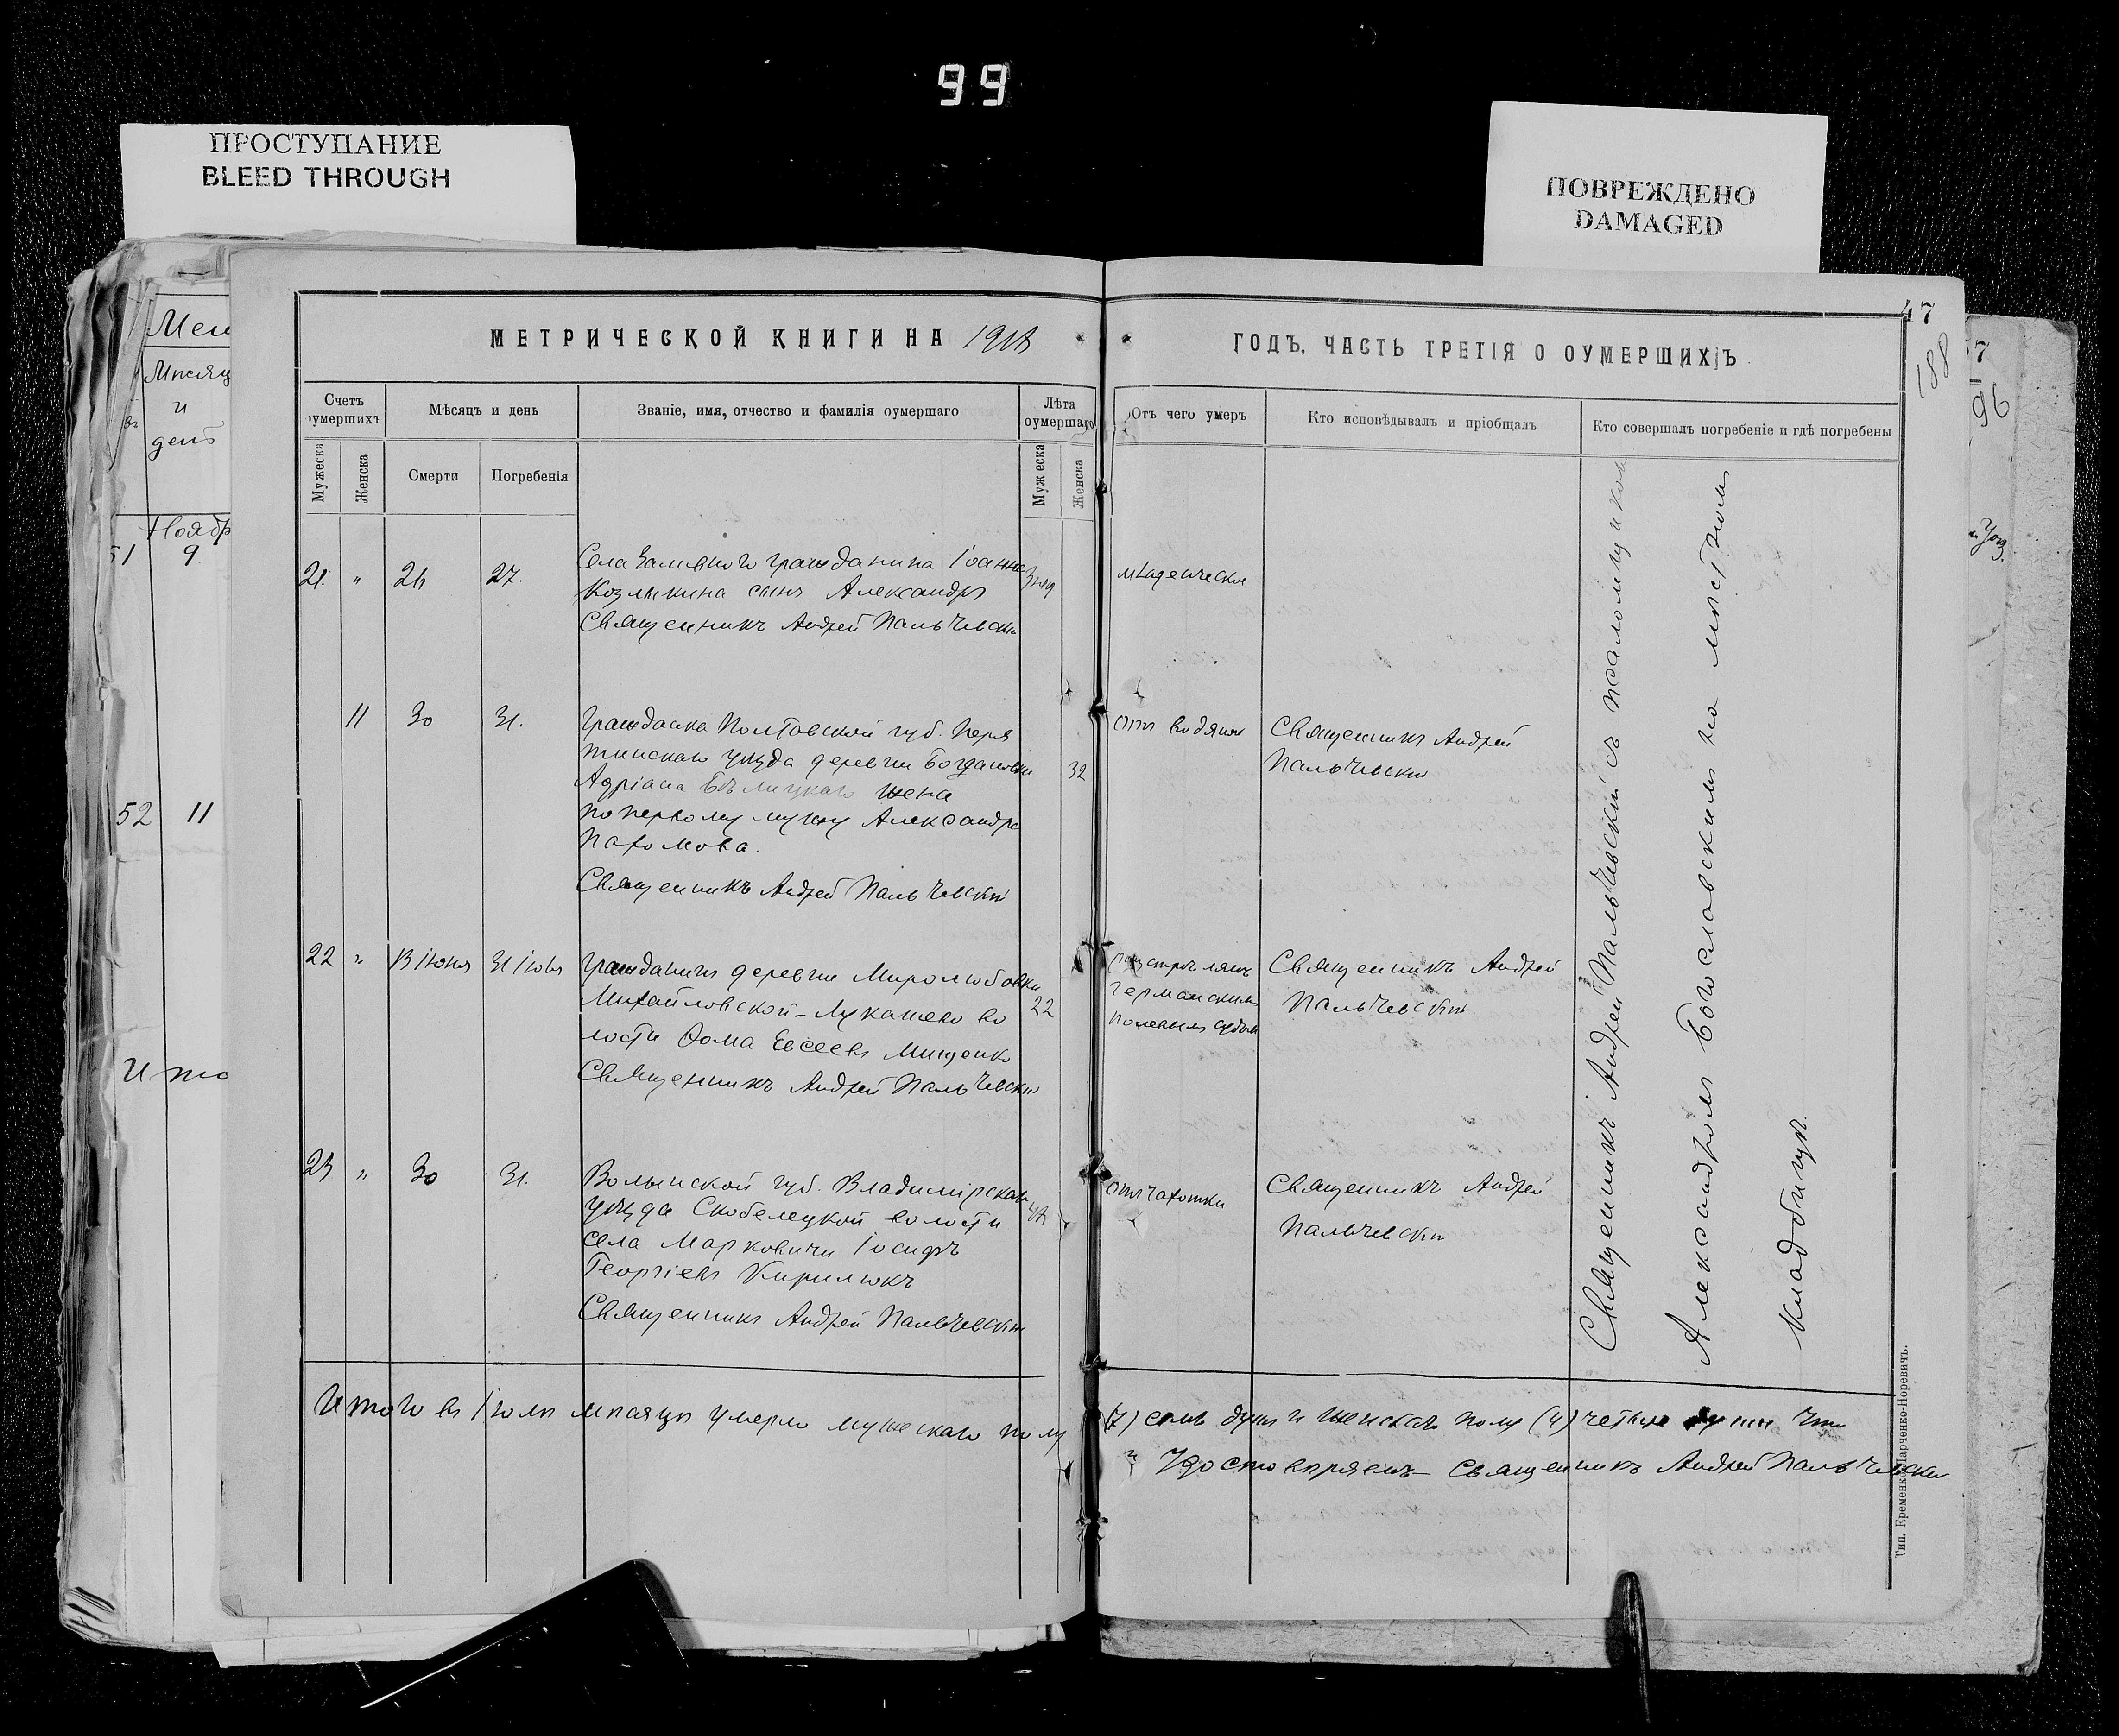 99
ПРОСТУПАНИЕ
BLEED THROUGH
ПОВРЕЖДЕНО
DAMAGED
47
188
7
96
Мѣсяц
и
день
Ноябр
51 9
52 11
Ито
МЕТРИЧЕСКОЙ КНИГИ НА 1918
ГОДЪ, ЧАСТЬ ТРЕТІЯ О ОУМЕРШИХЪ
Счетъ оумершихъ
Мѣсяцъ и день
Званіе, имя, отчество и фамилія оумершаго
Лѣта оумершаго
Отъ чего умеръ
Кто исповѣдывалъ и пріобщалъ
Кто совершалъ погребеніе и гдѣ погребены
Мужеска
Женска
Смерти
Погребенія
Мужеска
Женска
21. " 26 27.
Села Заливного гражданина Іоанна
Козлыкина сынъ Александръ
Священникъ Андрей Пальчевскій
младенческая
11 30 31.
Гражданка Полтавской губ. Пиря
тинскаго уѣзда деревни Богдановки
Адріана Бѣлицкаго жена
по первому мужу Александра
Пахомова.
Священникъ Андрей Пальчевскій
32
отъ водянки
Священникъ Андрей
Пальчевскій
22 " 13 Іюня 31 Іюля
Гражданинъ деревни Миролюбовки
Михайловской-Лукашево во
лости Фома Евсеевъ Мищенко
Священникъ Андрей Пальчевскій
22
разстрѣлянъ
германскимъ
полевымъ судомъ
Священникъ Андрей
Пальчевскій
23 " 30 31.
Волынской губ. Владимірскаго
уѣзда Скобелецкой волости
села Марковичи Іосифъ
Георгіевъ Кирилюкъ
Священникъ Андрей Пальчевскій
отъ чахотки
Священникъ Андрей
Пальчевскій
Священникъ Андрей Пальчевскій съ псаломщикомъ
Александромъ Богославскимъ на мѣстномъ
кладбищѣ.
Итого въ Іюлѣ мѣсяцѣ умерло мужескаго полу (7) семь душъ и женскаго полу (4) четыре души что
удостовѣряетъ Священникъ Андрей Пальчевскій
Тип. Еременко-Марченко-Норевичъ.